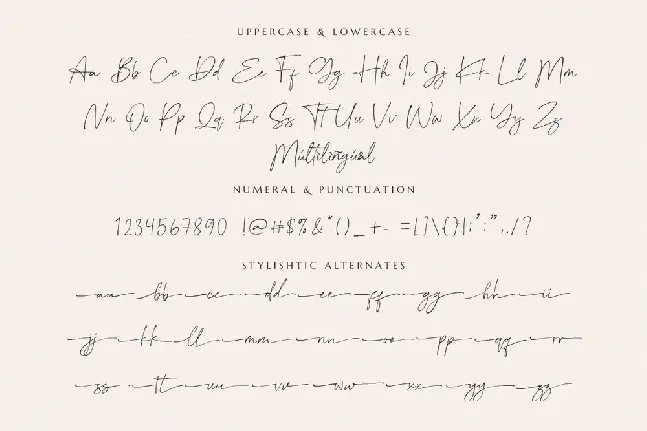 UPPERCASE & LOWERCASE
Aa Bb Cc Dd Ee Ff Gg Hh Ii Jj Kk Ll Mm
Nn Oo Pp Qq Rr Ss Tt Uu Vv Ww Xx Yy Zz
Múltilingúal
NUMERAL & PUNCTUATION
1234567890 !@#$%&*()_+- =[]\{}|;':",./?
STYLISHTIC ALTERNATES
aa bb cc dd ee ff gg hh ii
jj kk ll mm nn oo pp qq rr
ss tt uu vv ww xx yy zz